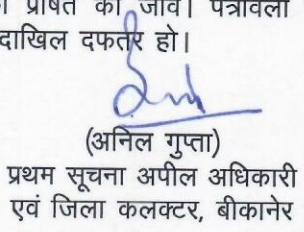 प्रेषित की जावे। पत्रावली
दाखिल दफतर हो।
(अनिल गुप्ता)
प्रथम सूचना अपील अधिकारी
एवं जिला कलक्टर, बीकानेर